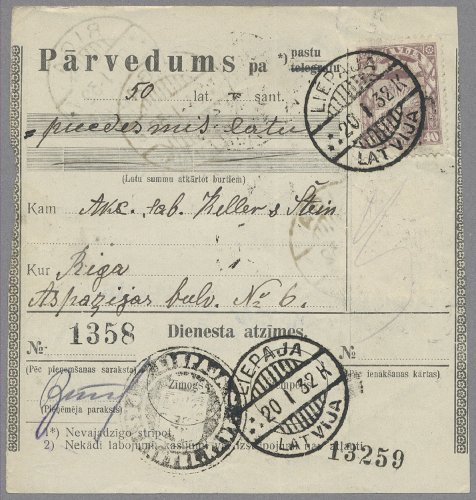 Pārvedums pa *) pastu
telegrafu
50 lat. — sant.
piecdesmits latu
(Latu summu atkārtot burtiem)
Kam Akc. sab. Keller & Stein
Kur Riga
Aspazijas bulv. No 6.
№ 1358 Dienesta atzīmes. №
(Pēc pieņemšanas saraksta) (Pēc ienākšanas kārtas)
Zīmogs
(Pieņēmēja paraksts)
1*) Nevajadzīgo strīpot
2) Nekādi labojumi,
13259
LIEPĀJA 1
20 I 32 K
LATVIJA
40
LIEPĀJA
20 I 32 K
LATVIJA